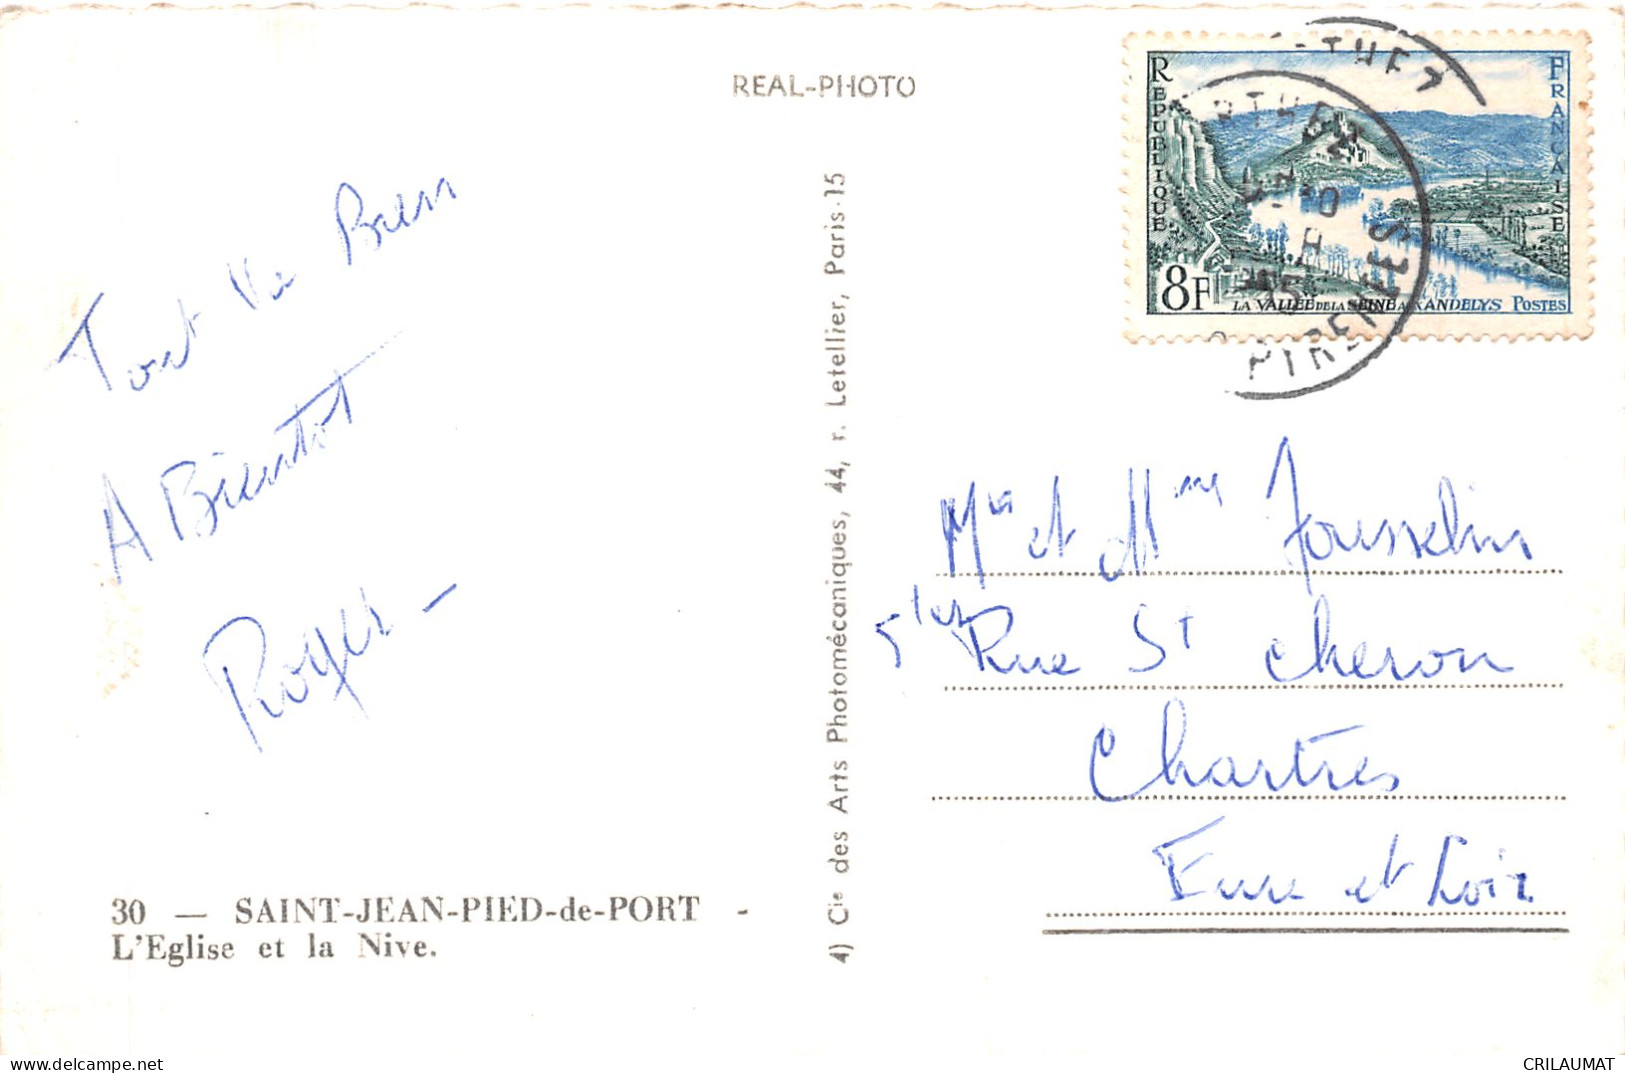 REAL-PHOTO
RÉPUBLIQUE
FRANÇAISE
8F
LA VALLÉE DE LA SEINE AUX ANDELYS POSTES
Tout Va Bien
A Bientot
Roger -
4) Cie des Arts Photomécaniques, 44, r. Letellier, Paris-15
Mr et Mme Jousselin
5 ter Rue St Cheron
Chartres
Eure et Loir
30 — SAINT-JEAN-PIED-de-PORT -
L'Eglise et la Nive.
www.delcampe.net
CRILAUMAT